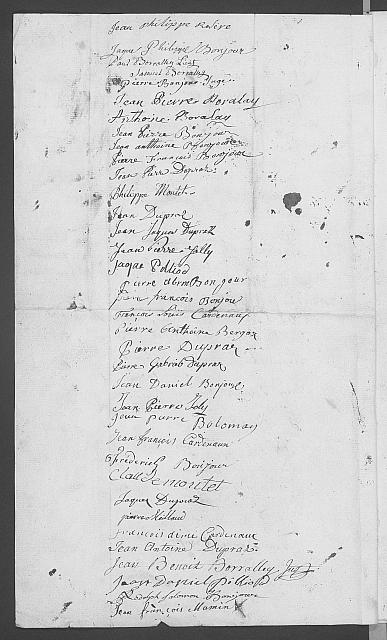 Jean Philippe
Jaques Philippe Bonjour
Paul Borralley
Samuel Borraley
Pierre Bonjour Juge
Jean Pierre Boralay
Anthoine Boralay
Jean Pierre Bonjour
Jean anthoine Bonjour
Pierre François Bonjour
Jean Pierre Depraz
Philippe Montet
Jean Dupraz
Jean Jaques Dupraz
Jean Pierre Jolly
Jaque
Pierre abrm Bonjour
Jean francois Bonjour
François Louis Cardenaux
Pierre Anthoine Berger
Pierre Duprar
Pierre Gabriel Dupraz
Jean Daniel Bonjour
Jean Pierre Joly
Jean Pierre
Jean françois Cardenaux
frederich Bonjour
Claude montet
Jaques Dupraz
pierre
francois Cardenaux
Jean Antoine Dupraz
Jean Benoit Borralley
Jean Daniel
Rodolph Salomon Bonjour
Jean françois Mamin